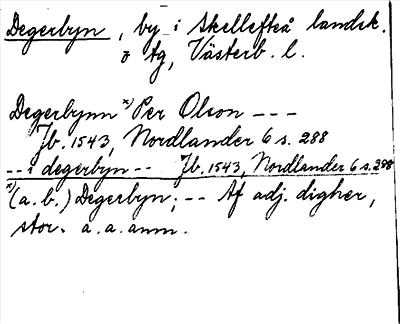 Degerbyn, by i Skellefteå landsk.
o tg, Västerb. l.
Degerbynn x) Per Olson ---
Jb. 1543, Nordlander 6 s. 288
--- i degerbyn -- Jb. 1543, Nordlander 6 s. 288
x) (a. b.) Degerbyn; -- Af adj. digher,
stor. a. a. anm.